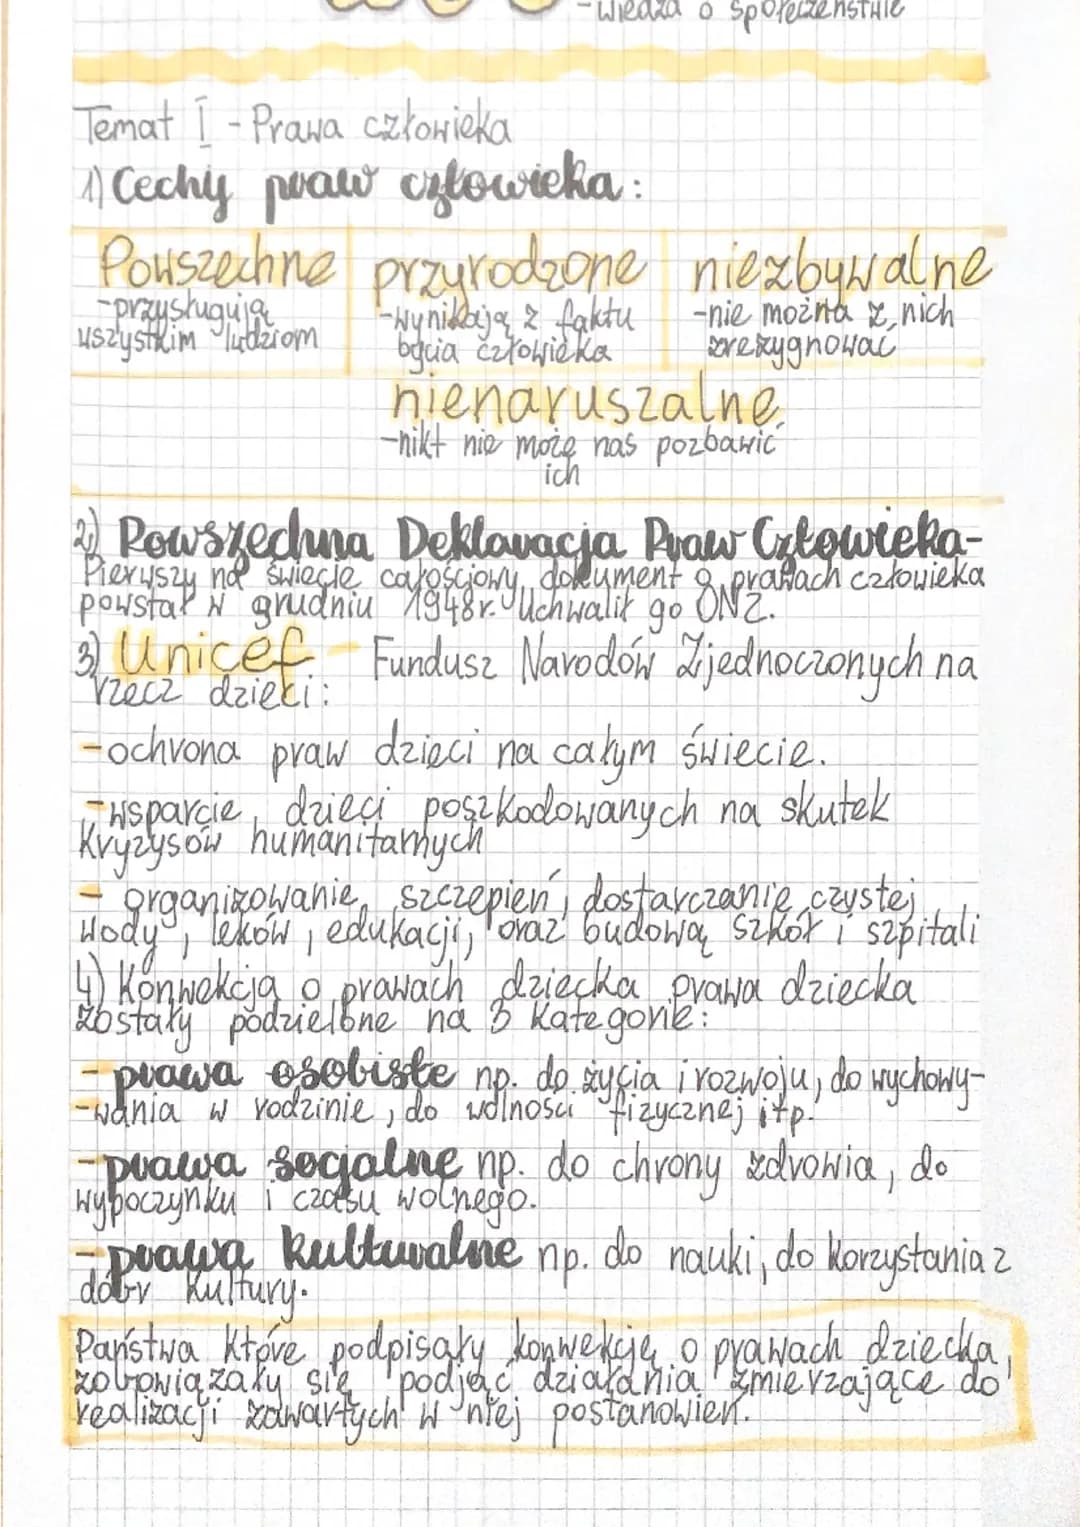 - wiedza o społeczeństwie
Temat I - Prawa człowieka
1) Cechy praw człowieka:
Powszechne przyrodzone niezbywalne
-przysługują -wynikają z faktu -nie można z nich
wszystkim ludziom bycia człowieka zrezygnować
nienaruszalne
-nikt nie może nas pozbawić
ich
2) Powszechna Deklaracja Praw Człowieka-
Pierwszy na świecie całościowy dokument o prawach człowieka
powstał w grudniu 1948r. Uchwalił go ONZ.
3) Unicef - Fundusz Narodów Zjednoczonych na
rzecz dzieci:
-ochrona praw dzieci na całym świecie.
-wsparcie dzieci poszkodowanych na skutek
kryzysów humanitarnych
- organizowanie szczepień, dostarczanie czystej
wody, leków, edukacji, oraz budową szkół i szpitali
4) Konwekcja o prawach dziecka prawa dziecka
zostały podzielone na 3 kategorie:
-prawa osobiste np. do życia i rozwoju, do wychowy-
-wania w rodzinie, do wolności fizycznej itp.
-prawa socjalne np. do chrony zdrowia, do
wypoczynku i czasu wolnego.
-prawa kulturalne np. do nauki, do korzystania z
dóbr kultury.
Państwa które podpisały konwekcję o prawach dziecka,
zobowiązały się podjąć działania zmierzające do
realizacji zawartych w niej postanowień.